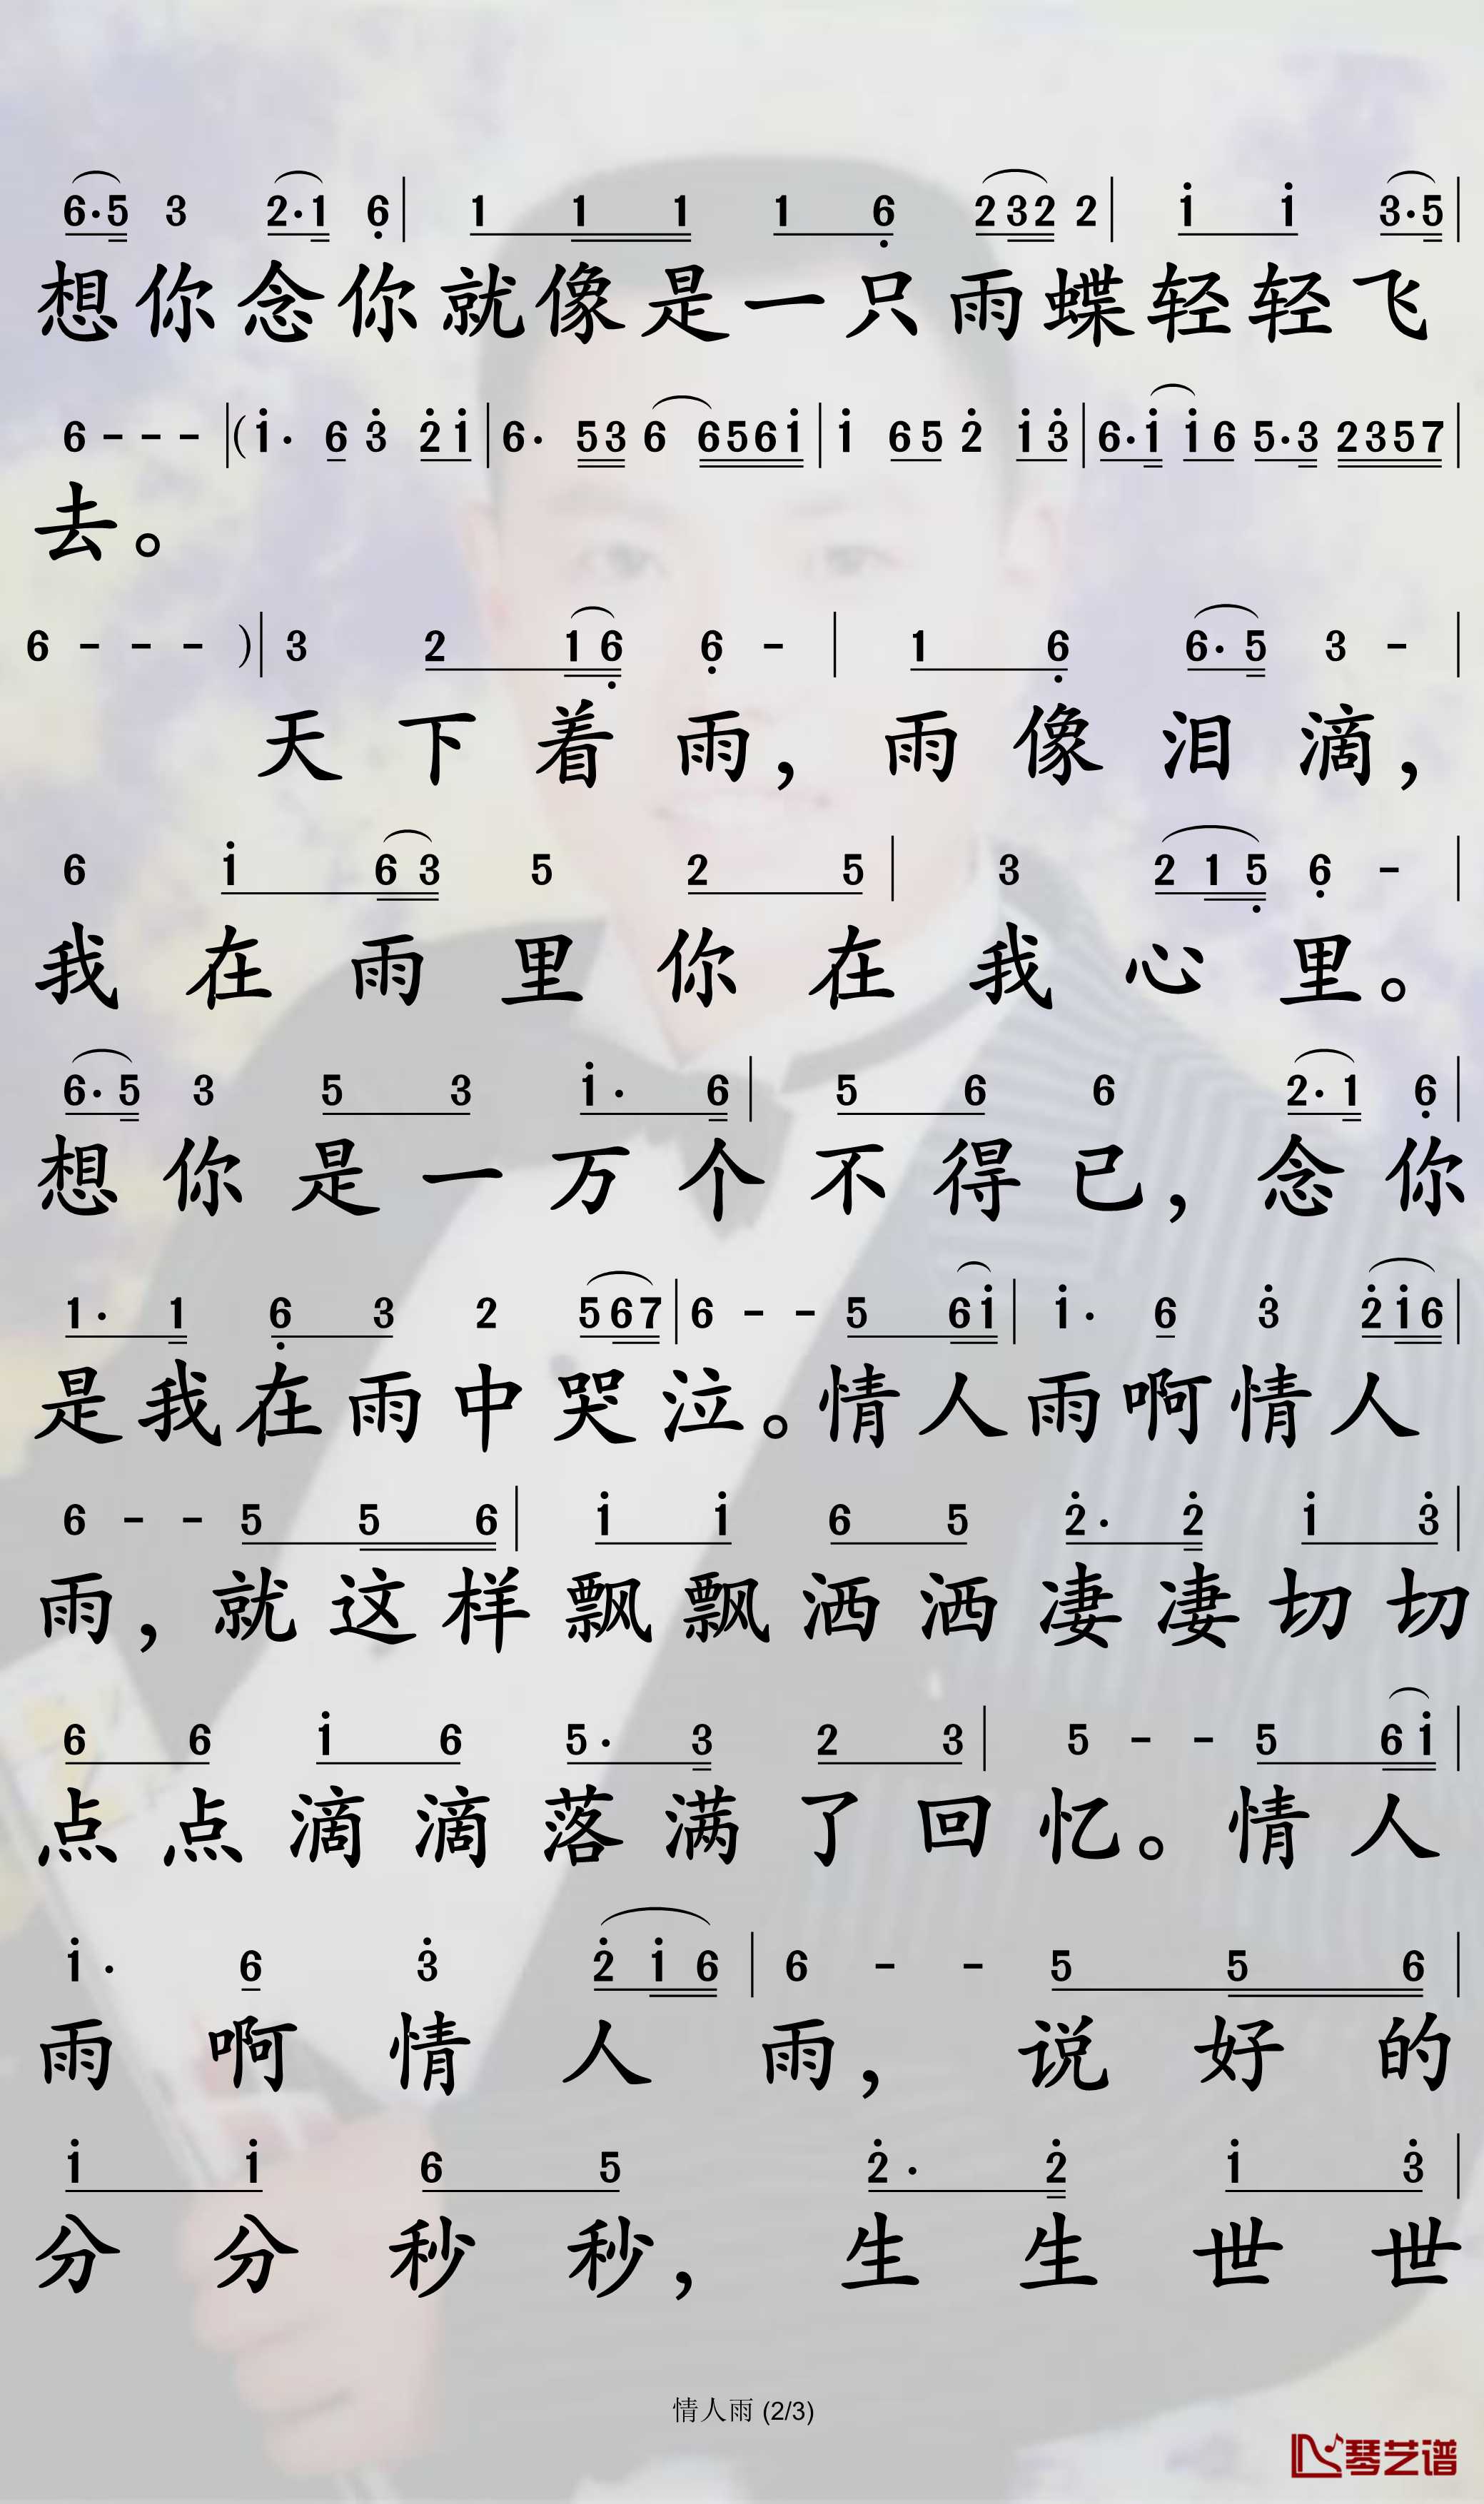 6·5 3 2·1 6̣ | 1 1 1 1 6̣ 232 2 | i i 3·5 |
想你念你就像是一只雨蝶轻轻飞
6 - - - | (i· 6 3̇ 2̇ i | 6· 53 6 656i | i 65 2̇ i3̇ | 6·i i6 5·3 2357 |
去。
6 - - - ) | 3 2 1 6̣ 6̣ - | 1 6̣ 6·5 3 - |
天下着雨，雨像泪滴，
6 i 6 3 5 2 5 | 3 2 1 5̣ 6̣ - |
我在雨里你在我心里。
6·5 3 5 3 i· 6 | 5 6 6 2·1 6̣ |
想你是一万个不得已，念你
1· 1 6̣ 3 2 567 | 6 - - 5 6i | i· 6 3̇ 2̇i6 |
是我在雨中哭泣。情人雨啊情人
6 - - 5 5 6 | i i 6 5 2̇· 2̇ i 3̇ |
雨，就这样飘飘洒洒凄凄切切
6 6 i 6 5· 3 2 3 | 5 - - 5 6i |
点点滴滴落满了回忆。情人
i· 6 3̇ 2̇ i 6 | 6 - - 5 5 6 |
雨啊情人雨，说好的
i i 6 5 2̇· 2̇ i 3̇ |
分分秒秒，生生世世
情人雨 (2/3)
琴艺谱